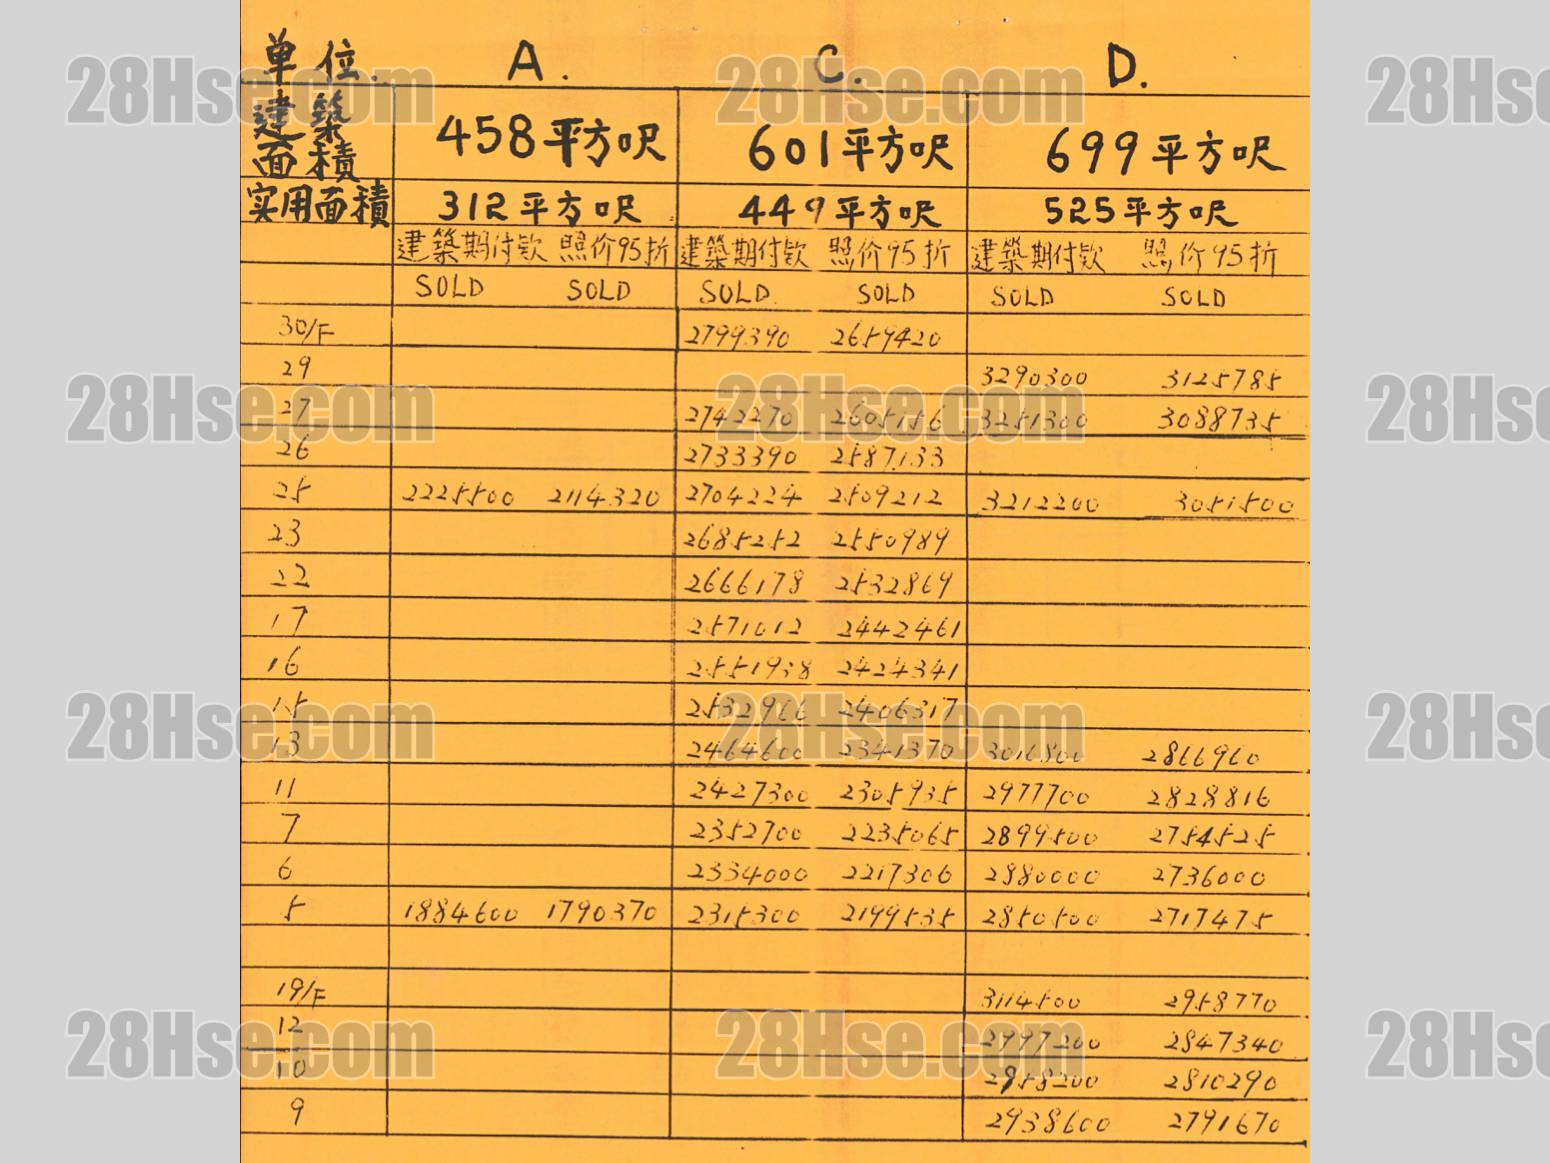 单位. A. C. D.
建築面積 458平方呎 601平方呎 699平方呎
实用面積 312平方呎 449平方呎 525平方呎
建築期付款 照价95折 建築期付款 照价95折 建築期付款 照价95折
SOLD SOLD SOLD SOLD SOLD SOLD
30/F 2799390 2659420
29 3290300 3125785
27 2742270 2605156 3251300 3088735
26 2733390 2587133
25 2225500 2114320 2704224 2509212 3212200 3051500
23 2685252 2550989
22 2666178 2532869
17 2571012 2442461
16 2551938 2424341
15 2532966 2406317
13 2464600 2341370 3016800 2866960
11 2427300 2305935 2977700 2828816
7 2352700 2235065 2899500 2754525
6 2334000 2217306 2880000 2736000
5 1884600 1790370 2315300 2199535 2850500 2717475
19/F 3114500 2958770
12 2997200 2847340
10 2958200 2810290
9 2938600 2791670
28Hse.com 28Hse.com 28Hse
28Hse.com 28Hse.com 28Hse
28Hse.com 28Hse.com 28Hse
28Hse.com 28Hse.com 28Hse